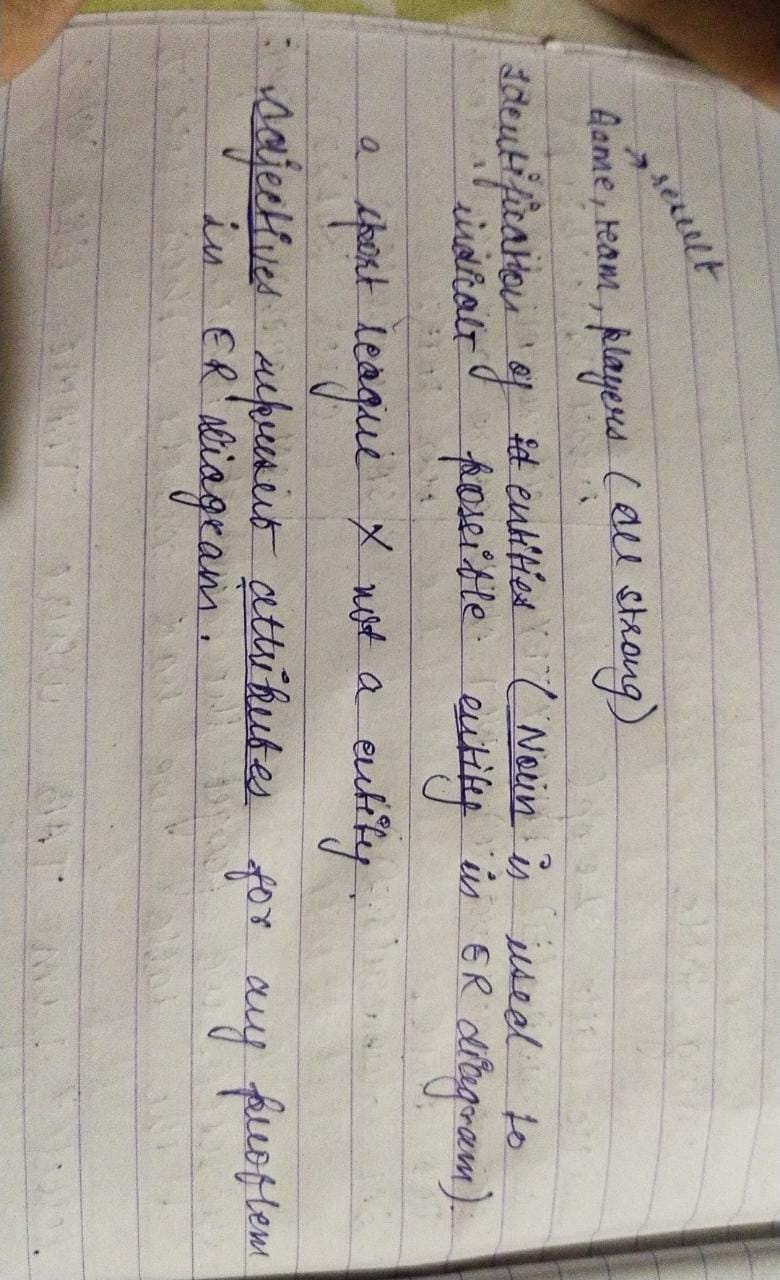 result
Game, team, players (all strong)
Identification of entities (Noun is used to
indicate possible entity in ER diagram).
a sport league X not a entity.
: Adjectives represent attributes for any problem
in ER diagram.